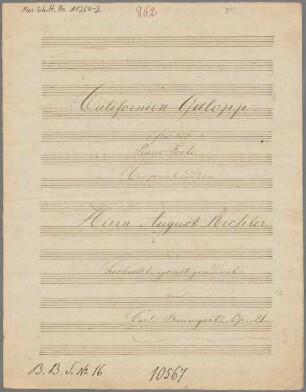 Mus. Schott. Ha 11250-2
862
Californien-Galopp.
für das
Piano Forte
Componirt und dem
Herrn August Richter
hochachtungsvoll gewidmet
von
Carl Op. 21.
B. B. S. № 16
10567